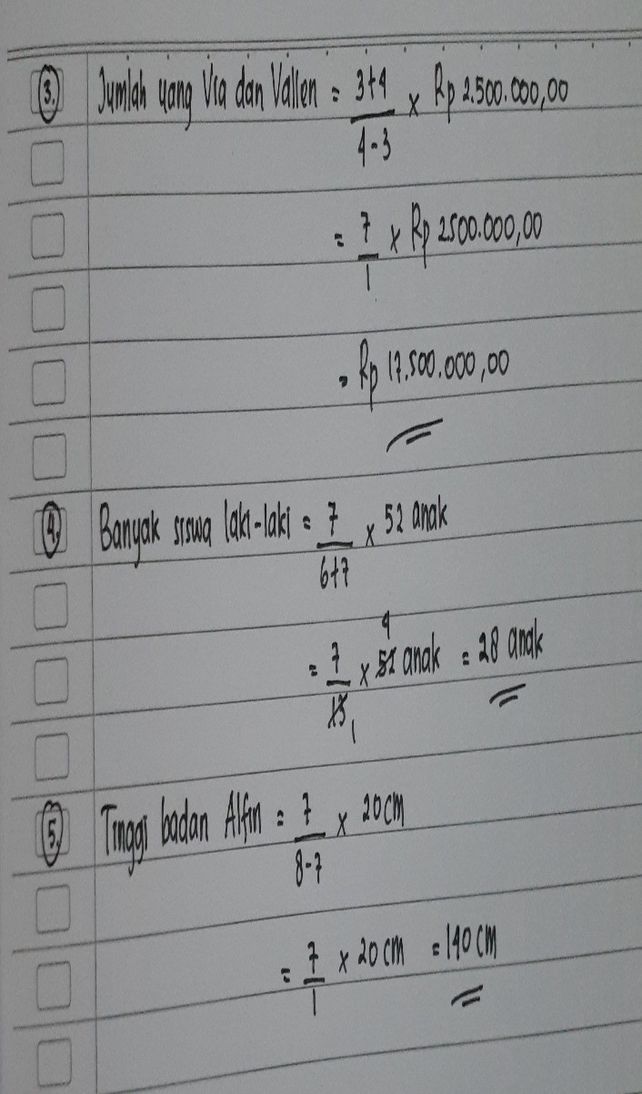 3. Jumlah uang Via dan Vallen = 3+4/4-3 x Rp 2.500.000,00
= 7/1 x Rp 2500.000,00
= Rp 17.500.000,00
4. Banyak siswa laki-laki = 7/6+7 x 52 anak
= 7/13 1 x 52 4 anak = 28 anak
5. Tinggi badan Alfin = 7/8-7 x 20 cm
= 7/1 x 20 cm = 140 cm